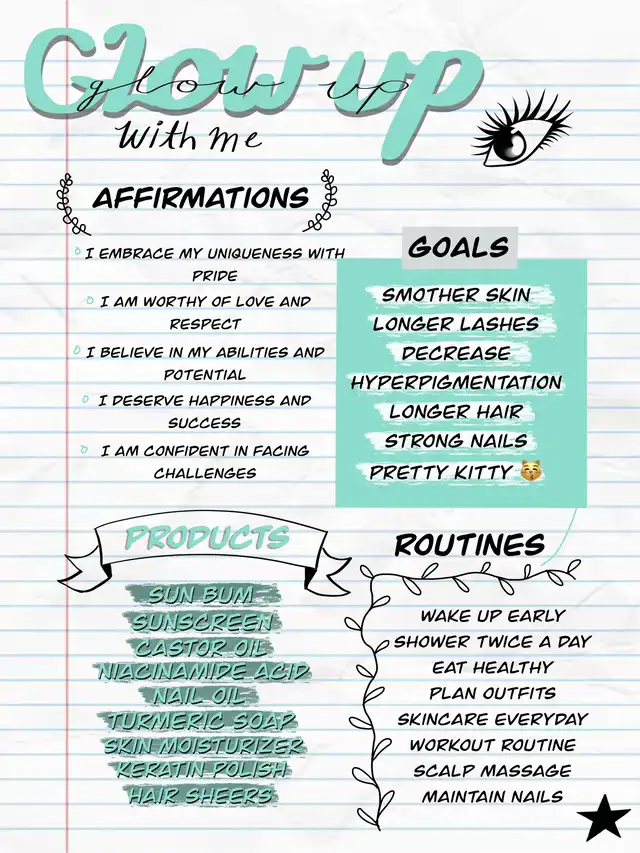 Glow up
glow up
With me
AFFIRMATIONS
I EMBRACE MY UNIQUENESS WITH
PRIDE
I AM WORTHY OF LOVE AND
RESPECT
I BELIEVE IN MY ABILITIES AND
POTENTIAL
I DESERVE HAPPINESS AND
SUCCESS
I AM CONFIDENT IN FACING
CHALLENGES
GOALS
SMOTHER SKIN
LONGER LASHES
DECREASE
HYPERPIGMENTATION
LONGER HAIR
STRONG NAILS
PRETTY KITTY 😽
PRODUCTS
SUN BUM
SUNSCREEN
CASTOR OIL
NIACINAMIDE ACID
NAIL OIL
TURMERIC SOAP
SKIN MOISTURIZER
KERATIN POLISH
HAIR SHEERS
ROUTINES
WAKE UP EARLY
SHOWER TWICE A DAY
EAT HEALTHY
PLAN OUTFITS
SKINCARE EVERYDAY
WORKOUT ROUTINE
SCALP MASSAGE
MAINTAIN NAILS